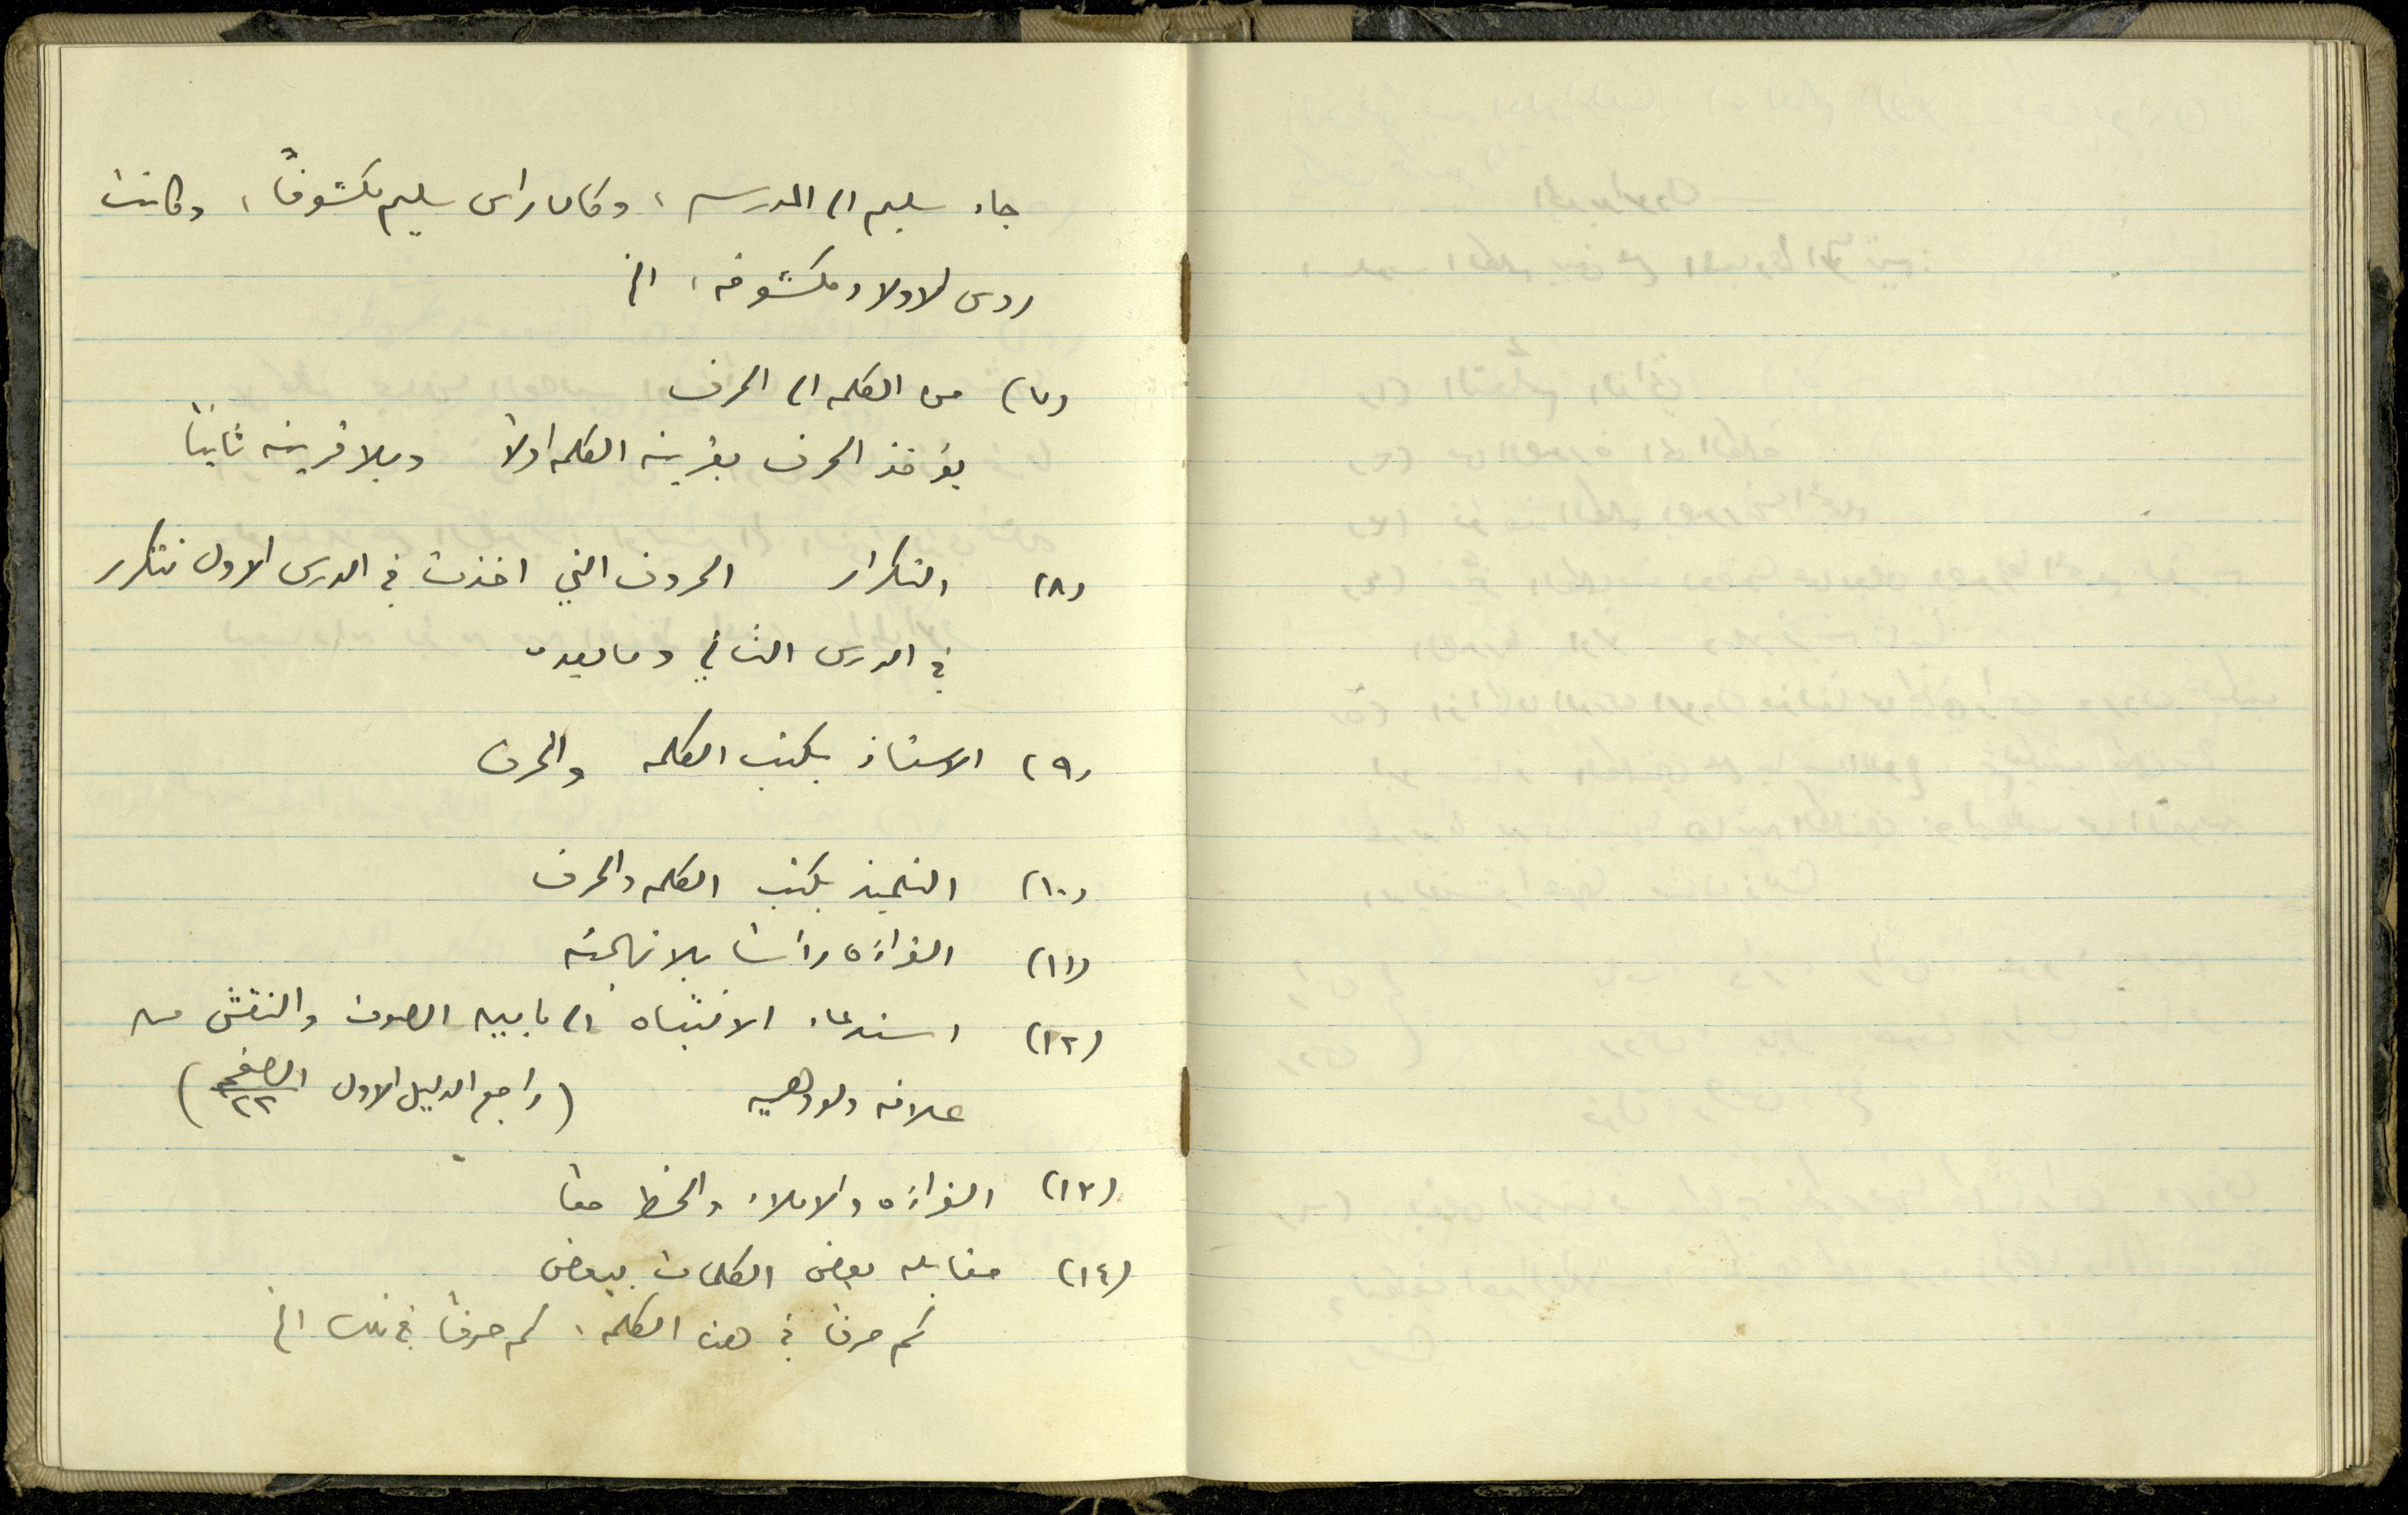 جاء سليم الى المدرسه، وكان راس سليم مكشوفاً، وكانت
روس الاولاد مكشوفه، الخ
(٧) من الكلمه الى الحرف
يؤخذ الحرف بقرينه الكلمه اولاً وبلا قرينه ثانياً
(٨) التكرار الحروف التي اخذت في الدرس الاول تتكرر
في الدرس الثاني وما بعده
(٩) الاستاذ يكتب الكلمه والحرف
(١٠) التلميذ يكتب الكلمه والحرف
(١١) القراءه رأساً بلا تهجئه
(١٢) استدعاء الانتباه الى ما بين الصوت والنقش من
علاقه ولو وهميه (راجع الدليل الاول الصفحه ٢٢)
(١٣) القراءه والاملاء والخط معاً
(١٤) مقابله بعض الكلمات ببعض
كم حرفاً في هذه الكلمه، كم حرفاً في تلك الخ